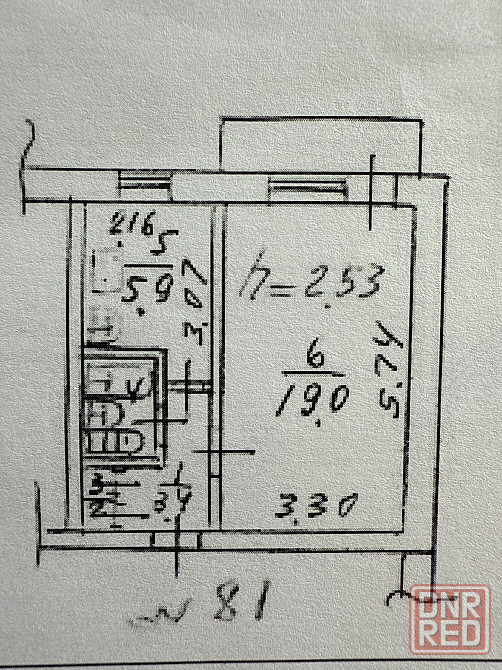 2.16
5
5.9
3.07
h=2.53
6
19.0
5.74
4
3
2
1
3.4
3.30
№ 81
DNR
RED